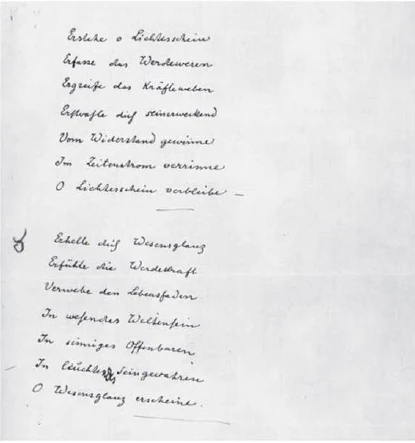 Erstehe o Lichtesschein
Erfasse das Werdewesen
Ergreife das Kräfteweben
Erstrahle dich seinerweckend
Vom Widerstand gewinne
Im Zeitenstrom zerrinne
O Lichtesschein verbleibe –
♉
Erhelle dich Wesensglanz
Erfühle die Werdekraft
Verwebe den Lebensfaden
In wesendes Weltensein
In sinniges Offenbaren
In leuchtendes Seingewahren
O Wesensglanz erscheine.